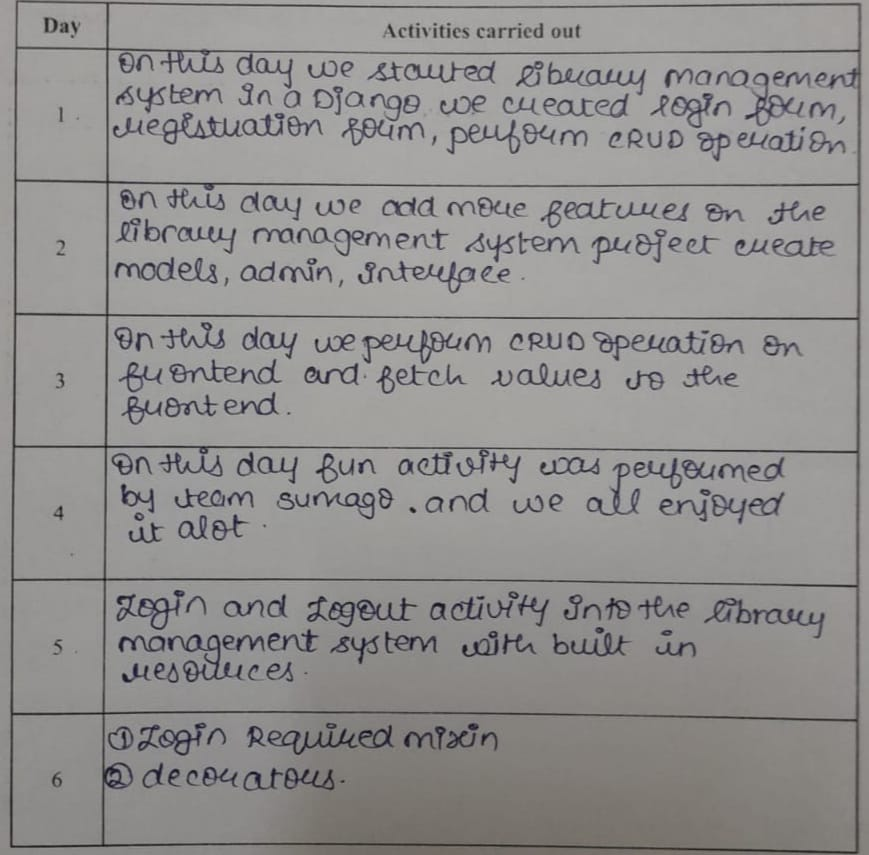 Day Activities carried out
1. On this day we started library management
system in a Django. we created login form,
registration form, perform CRUD operation.
2 On this day we add more features on the
library management system project create
models, admin, interface.
3 On this day we perform CRUD operation on
frontend and fetch values to the
frontend.
4 On this day fun activity was performed
by team sumago. and we all enjoyed
it alot.
5. Login and Logout activity into the library
management system with built in
resources.
6 ① Login Required mixin
② decorators.